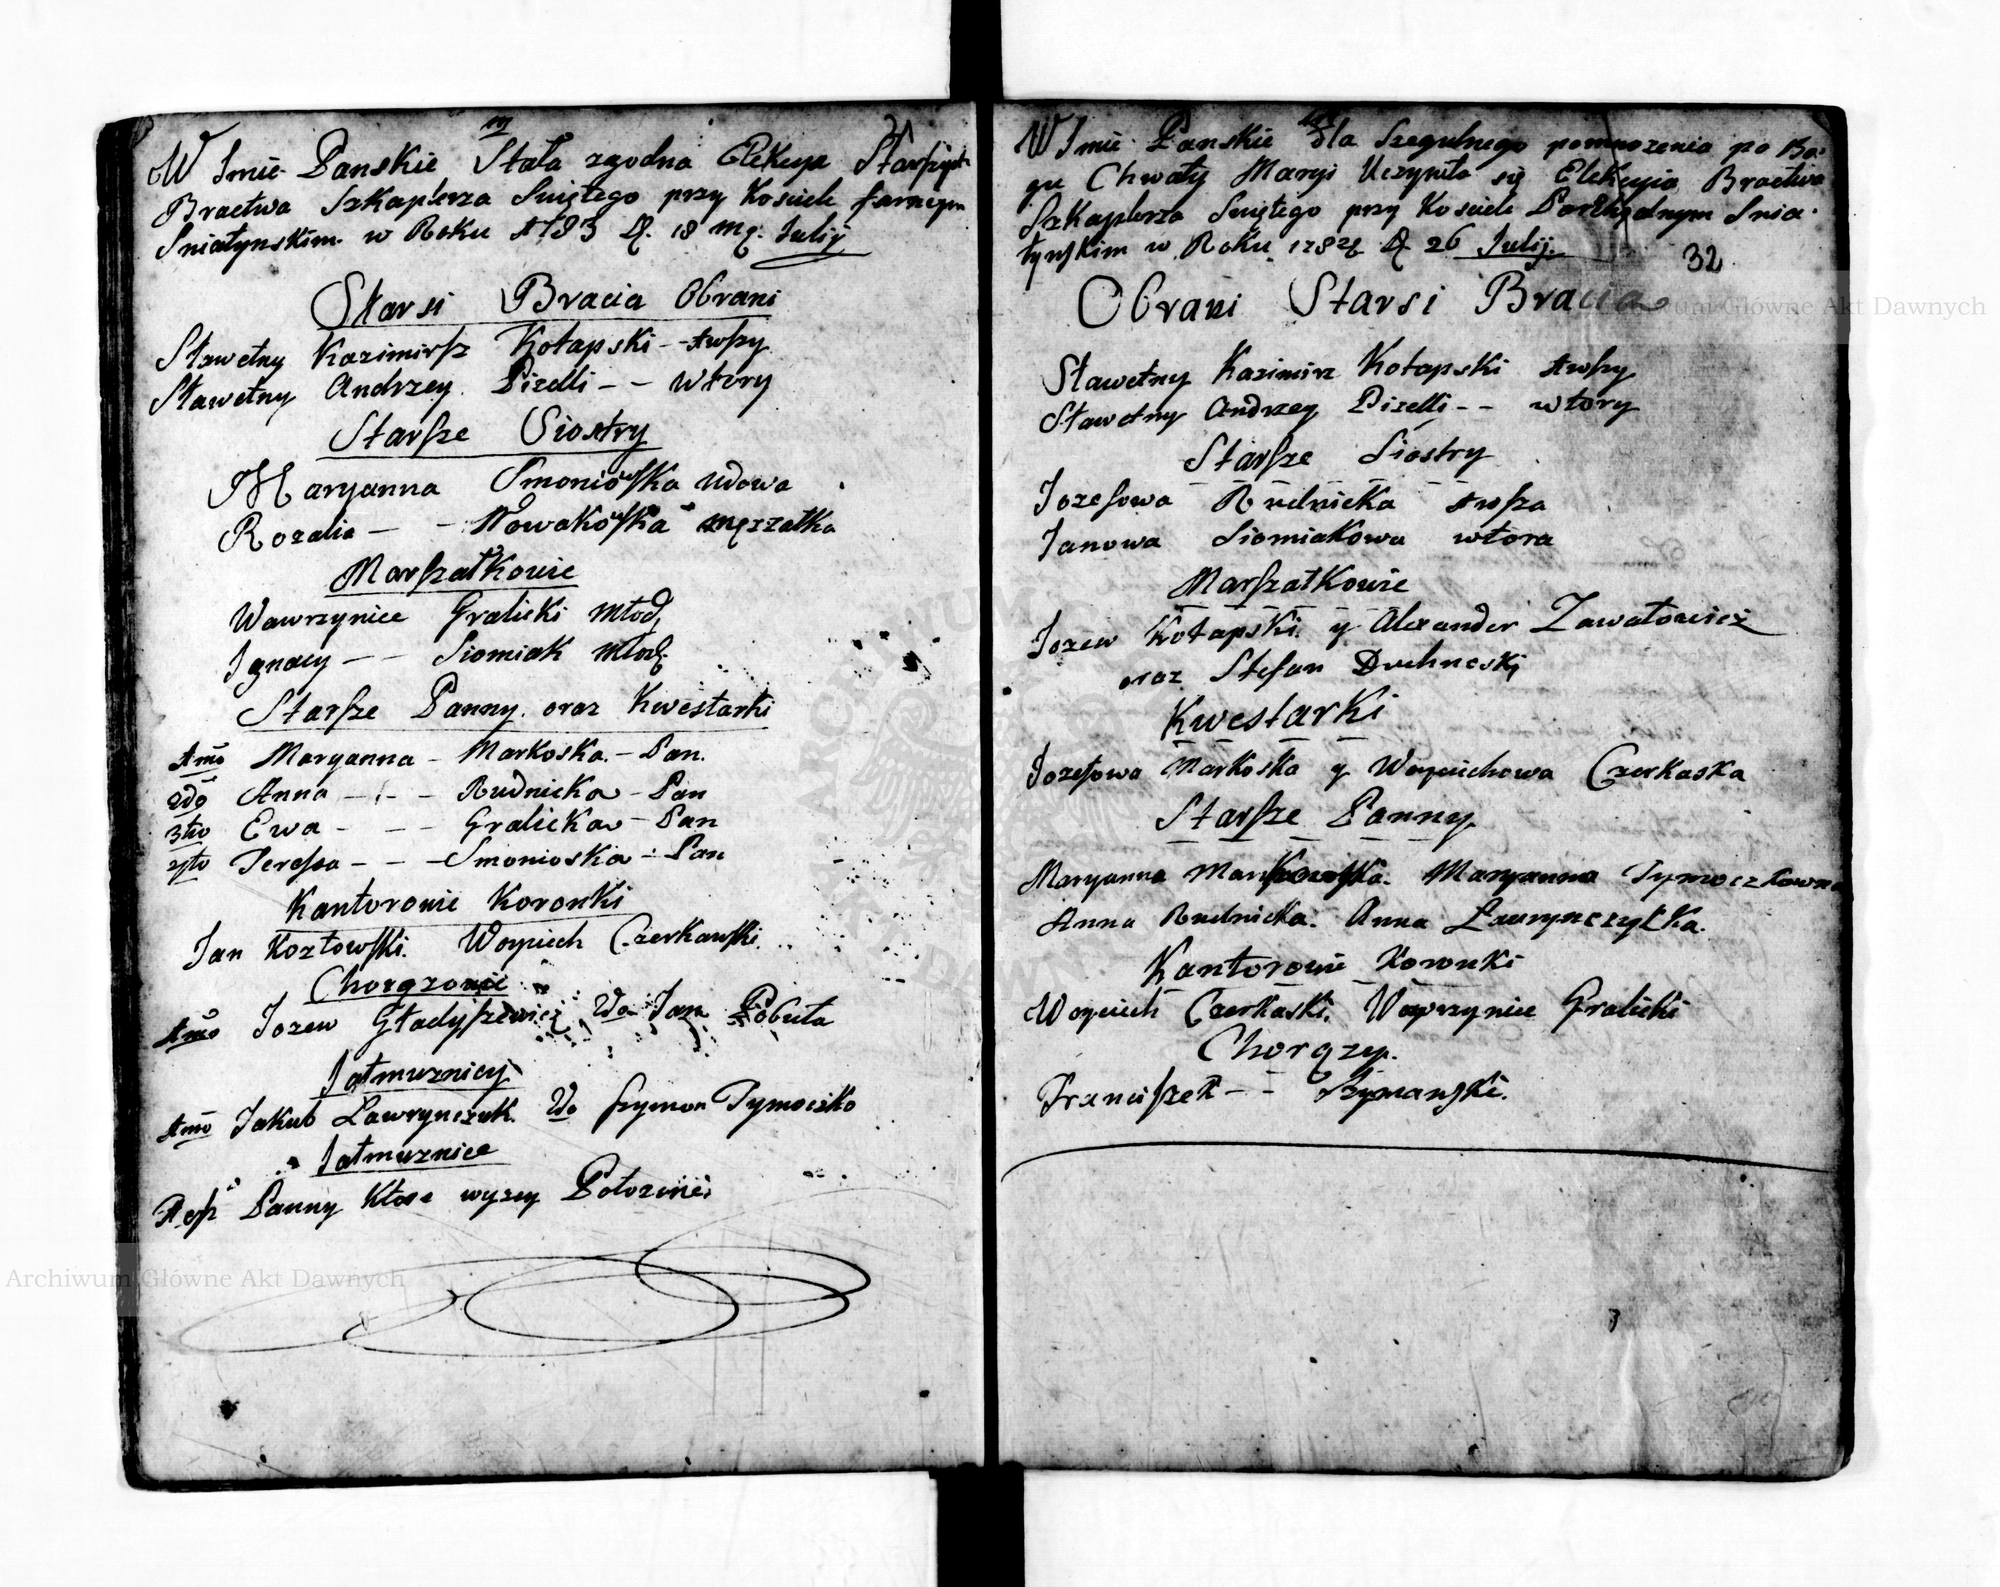 31
W Imie Panskie Stała zgodna Elekcya Starszych
Bractwa Szkaplerza Swiętego przy Kosciele farnym
Sniatynskim w Roku 1783 D. 18 Mą. Julij
Starsi Bracia Obrani
Sławetny Kazimirsz Kołapski - - 1wszy
Sławetny Andrzey Pizelli - - wtory
Starsze Siostry
Maryanna Smoniowska wdowa
Rozalia - - Nowakowska męzzatka
Marszałkowie
Wawrzyniec Gralicki Młod.
Ignacy - - Siomiak Młod.
Starsze Panny oraz Kwestarki
1mo Maryanna - Markoska - Pan.
2do Anna - - - Rudnicka - Pan
3tio Ewa - - - Gralicka - Pan
4to Teressa - - - Smonioska - Pan
Kantorowie Koronki
Jan Kozłowski. Woyciech Czerkawski.
Chorązowie
1mo Jozew Gładyszewicz 2do Jan Pobuta
Jałmuznicy
1mo Jakub Ławrynczuk. 2do Szymon Tymoczko
Jałmuznice
Panny Ktore wyzey Połozone
W Imie Panskie dla Szegulnego pomnozenia po Bo-
gu Chwały Maryi Uczyniła się Elekcyia Bractwa
Szkaplerza Swiętego przy Kosciele Snia-
tynskim w Roku 1784 D 26 Julij.
32
Obrani Starsi Bracia
Sławetny Kazimirz Kołapski 1wszy
Sławetny Andrzey Pizelli - - wtory
Starsze Siostry
Jozefowa Rudnicka 1wsza
Janowa Siomiakowa wtora
Marszałkowie
Jozew Kołapski. y Alexander Zawałowicz
oraz Stefan Duchneski
Kwestarki
Jozefowa Markoska y Woyciechowa Czerkaska
Starsze Panny
Maryanna Markowska. Maryanna Tymoczkowna
Anna Rudnicka. Anna Ławrynczytka.
Kantorowie Koronki
Woyciech Czerkaski. Wawrzyniec Gralicki
Chorązy.
Franciszek - - Szymanski.
Archiwum Główne Akt Dawnych
Archiwum Główne Akt Dawnych